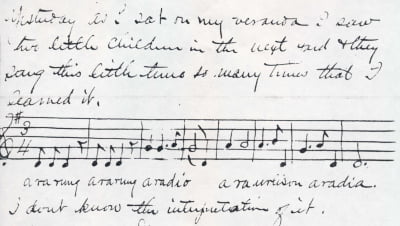 Yesterday as I sat on my veranda I saw
two little children in the next yard & they
sang this little tune so many times that I
learned it.
3
4
ararung ararung aradio a ra urrison aradia.
I dont know the interpretation of it.